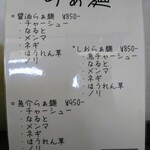 らぁ麺
◦醤油らぁ麺 ¥850-
・チャーシュー
・なると
・メンマ
・ネギ
・ほうれん草
・ノリ
◦しおらぁ麺 ¥850-
・鳥チャーシュー
・なると
・メンマ
・ネギ
・ほうれん草
・ノリ
◦魚介らぁ麺 ¥950-
・チャーシュー
・なると
・メンマ
・ネギ
・ほうれん草
・ノリ